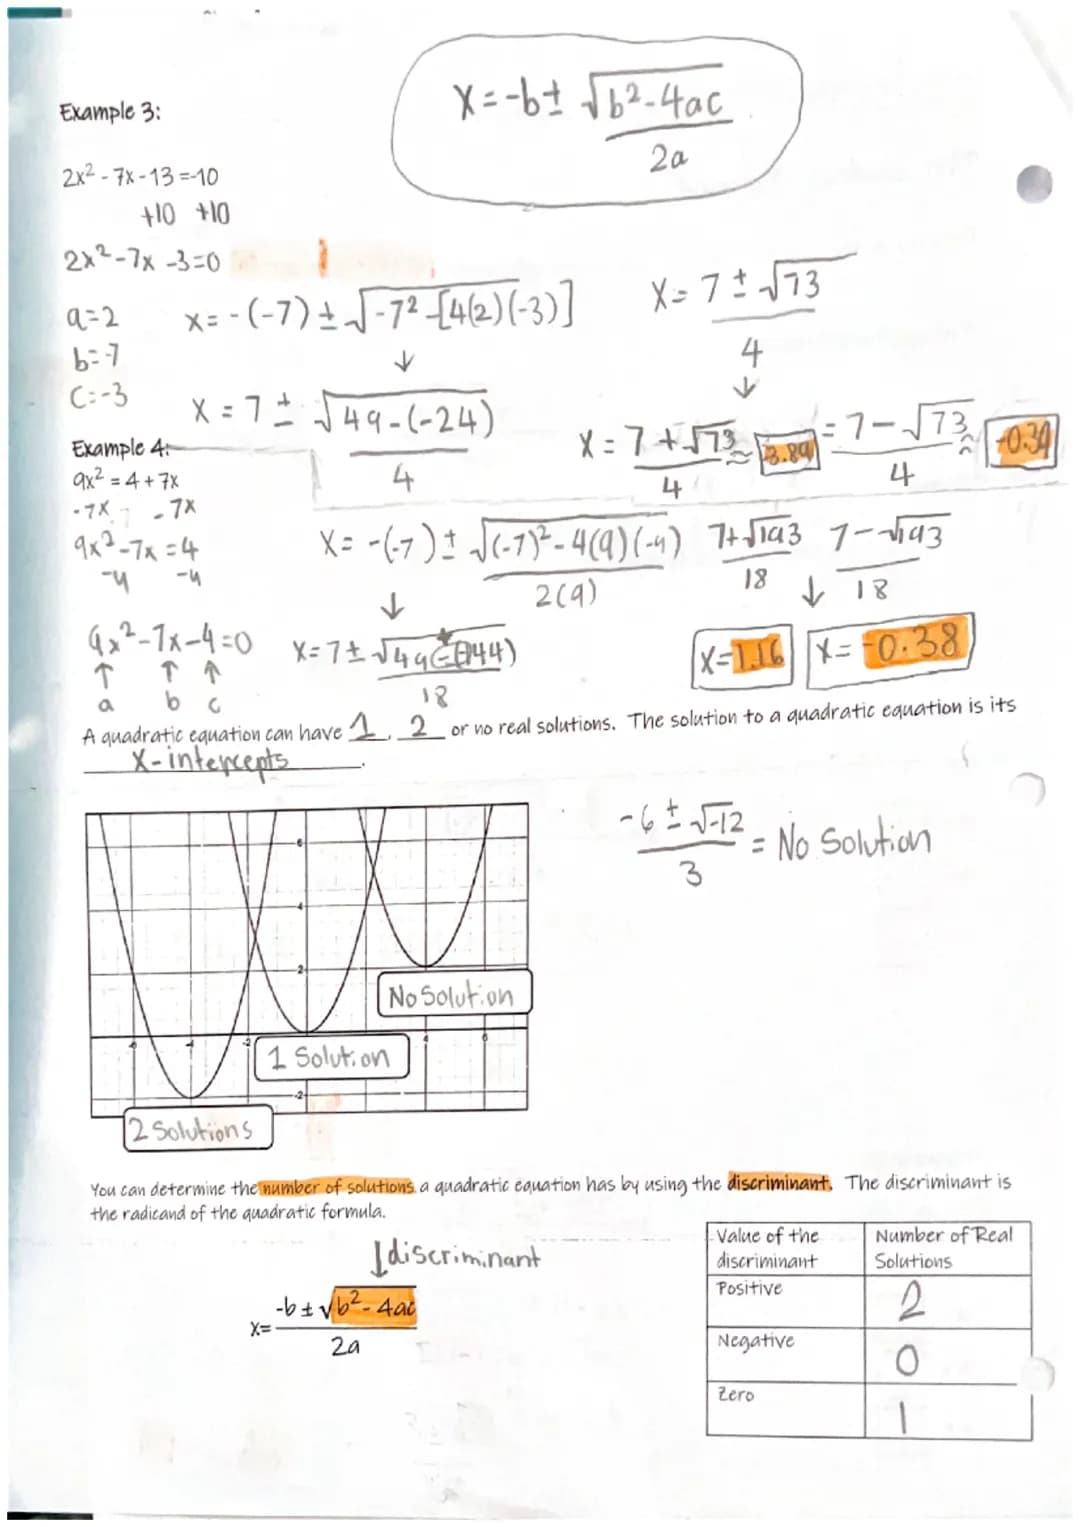 x = -b ± √b²-4ac
2a
Example 3:
2x² - 7x - 13 = -10
+10 +10
2x² - 7x - 3 = 0
a=2
b=-7
c=-3
x = -(-7) ± √-7² -[4(2)(-3)]
↓
x = 7 ± √49-(-24)
4
x = 7 ± √73
4
↓
x = 7 + √73 ≈ 3.89
4
= 7 - √73 ≈ -0.39
4
Example 4:
9x² = 4 + 7x
-7x -7x
9x² - 7x = 4
-4 -4
9x² - 7x - 4 = 0
↑ ↑ ↑
a b c
x = -(-7) ± √(-7)² - 4(9)(-4)
2(9)
↓
x = 7 ± √49
18
7+√193
18
7-√193
18
↓
x=1.16
x= -0.38
A quadratic equation can have 1, 2 or no real solutions. The solution to a quadratic equation is its
x-intercepts.
-6 ± √-12 = No Solution
3
6
4
2
-2
4
6
No Solution
1 Solution
2 Solutions
You can determine the number of solutions a quadratic equation has by using the discriminant. The discriminant is
the radicand of the quadratic formula.
↓discriminant
x= -b ± √b² - 4ac
2a
Value of the discriminant
Number of Real Solutions
Positive
2
Negative
0
Zero
1